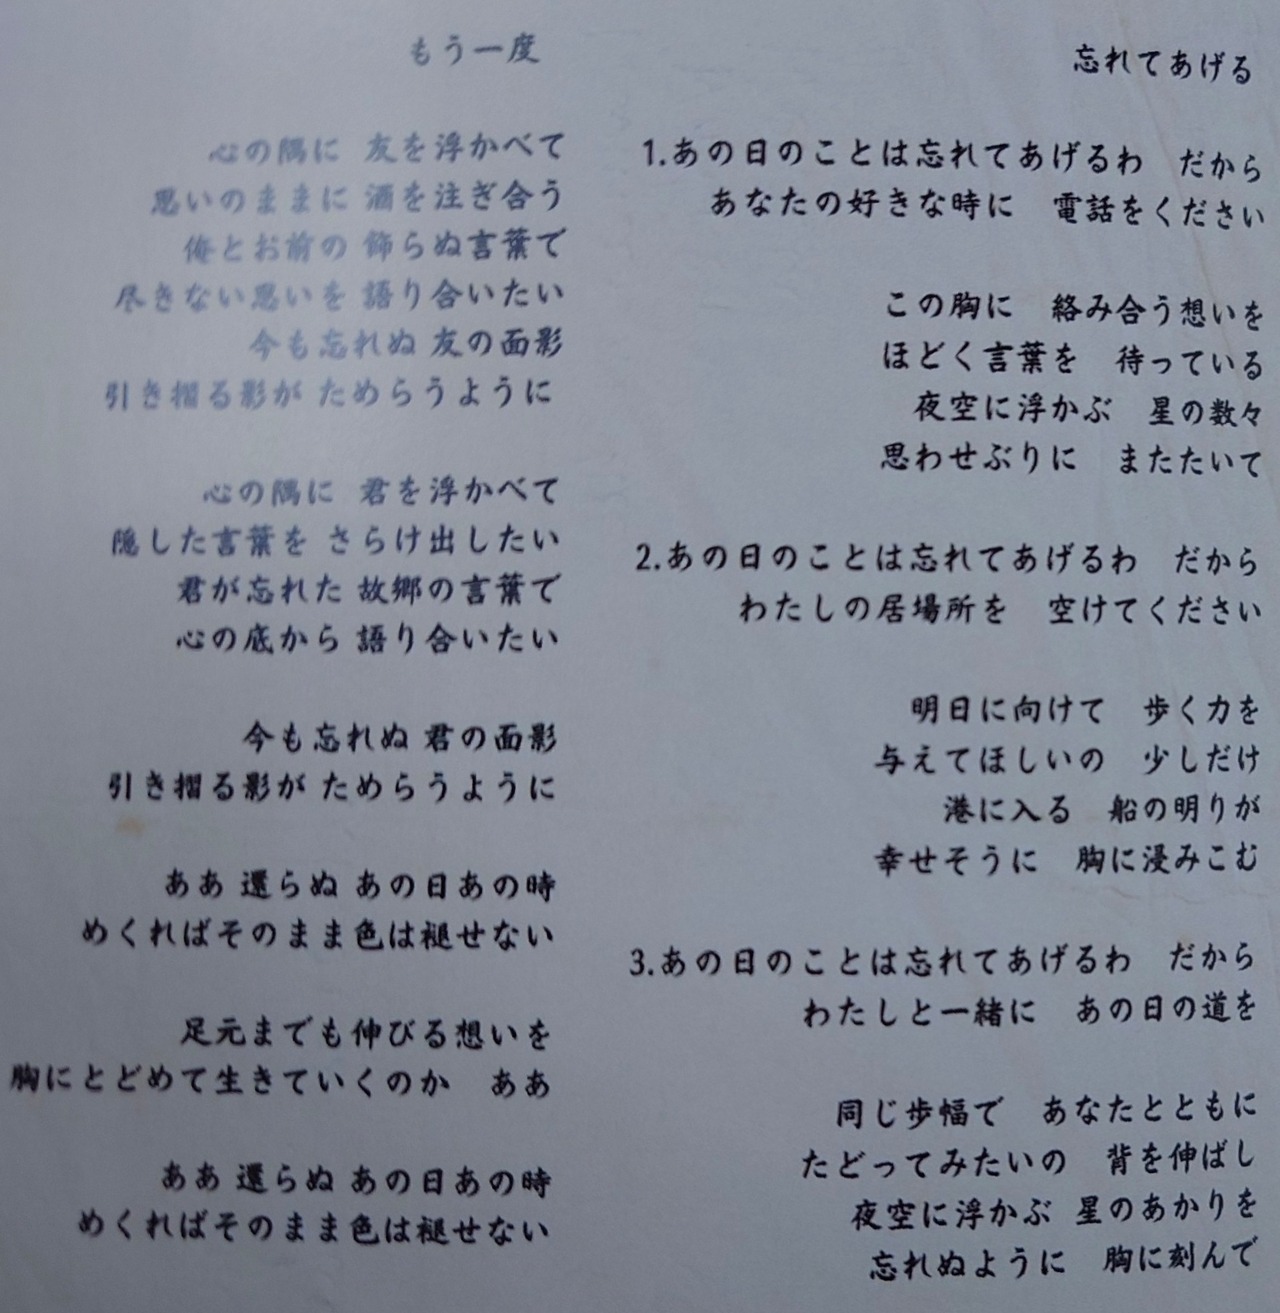 もう一度
心の隅に 友を浮かべて
思いのままに 酒を注ぎ合う
俺とお前の 飾らぬ言葉で
尽きない思いを 語り合いたい
今も忘れぬ 友の面影
引き摺る影が ためらうように
心の隅に 君を浮かべて
隠した言葉を さらけ出したい
君が忘れた 故郷の言葉で
心の底から 語り合いたい
今も忘れぬ 君の面影
引き摺る影が ためらうように
ああ 還らぬ あの日あの時
めくればそのまま色は褪せない
足元までも伸びる想いを
胸にとどめて生きていくのか　ああ
ああ 還らぬ あの日あの時
めくればそのまま色は褪せない
忘れてあげる
1.あの日のことは忘れてあげるわ　だから
あなたの好きな時に　電話をください
この胸に　絡み合う想いを
ほどく言葉を　待っている
夜空に浮かぶ　星の数々
思わせぶりに　またたいて
2.あの日のことは忘れてあげるわ　だから
わたしの居場所を　空けてください
明日に向けて　歩く力を
与えてほしいの　少しだけ
港に入る　船の明りが
幸せそうに　胸に浸みこむ
3.あの日のことは忘れてあげるわ　だから
わたしと一緒に　あの日の道を
同じ歩幅で　あなたとともに
たどってみたいの　背を伸ばし
夜空に浮かぶ 星のあかりを
忘れぬように　胸に刻んで